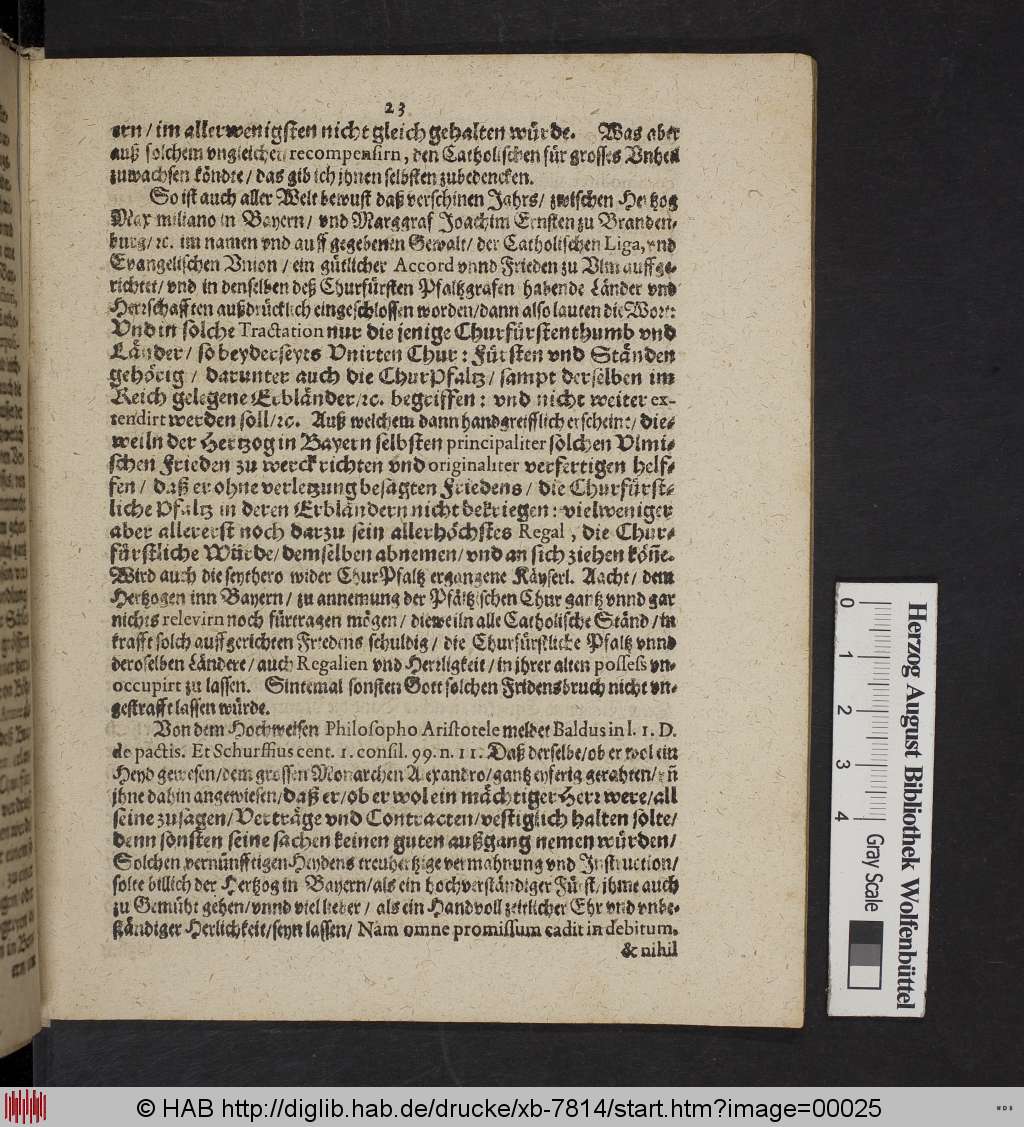 23
ern / im allerwenigsten nicht gleich gehalten würde. Was aber
auß solchem vngleichen recompensirn, den Catholischen für grosses Vnheil
zuwachsen köndte / das gib ich jhnen selbsten zubedencken.
So ist auch aller Welt bewust daß verschinen Jahrs / zwischen Hertzog
Maximiliano in Bayern / vnd Marggraf Joachim Ernsten zu Branden-
burg / ꝛc. im namen vnd auff gegebenen Gewalt / der Catholischen Liga, vnd
Evangelischen Vnion / ein gütlicher Accord vnnd Frieden zu Vlm auffge-
richtet / vnd in denselben deß Churfürsten Pfaltzgrafen habende Länder vnd
Herrschafften außdrücklich eingeschlossen worden / dann also lauten die Wort:
Vnd in solche Tractation nur die jenige Churfürstenthumb vnd
Länder / so beyderseyts Vnirten Chur: Fürsten vnd Ständen
gehörig / darunter auch die ChurPfaltz / sampt derselben im
Reich gelegene Erbländer / ꝛc. begriffen: vnd nicht weiter ex-
tendirt werden soll / ꝛc. Auß welchem dann handgreifflich erscheint / die-
weiln der Hertzog in Bayern selbsten principaliter solchen Vlmi-
schen Frieden zu werck richten vnd originaliter verfertigen helf-
fen / daß er ohne verletzung besagten Friedens / die Churfürst-
liche Pfaltz in deren Erbländern nicht bekriegen: vielweniger
aber allererst noch darzu sein allerhöchstes Regal, die Chur-
fürstliche Würde / demselben abnemen / vnd an sich ziehen köñe.
Wird auch die seythero wider ChurPfaltz ergangene Käyserl. Aacht / dem
Hertzogen inn Bayern / zu annemung der Pfältzischen Chur gantz vnnd gar
nichts relevirn noch fürtragen mögen / dieweiln alle Catholische Ständ / in
krafft solch auffgerichten Friedens schuldig / die Churfürstliche Pfaltz vnnd
deroselben Ländere / auch Regalien vnd Herrligkeit / in jhrer alten possess vn-
occupirt zu lassen. Sintemal sonsten Gott solchen Fridensbruch nicht vn-
gestrafft lassen würde.
Von dem Hochweisen Philosopho Aristotele meldet Baldus in l. 1. D.
de pactis. Et Schurffius cent. 1. consil. 99. n. 11. Daß derselbe / ob er wol ein
Heyd gewesen / dem grossen Monarchen Alexandro / gantz eyferig gerahten / vñ
jhne dahin angewiesen / daß er / ob er wol ein mächtiger Herr were / all
seine zusagen / Verträge vnd Contracten / vestiglich halten solte /
denn sonsten seine sachen keinen guten außgang nemen würden /
Solchen vernünfftigen Heydens treuhertzige vermahnung vnd Instruction /
solte billich der Hertzog in Bayern / als ein hochverständiger Fürst / ihme auch
zu Gemüht gehen / vnnd viel lieber / als ein Handvoll zeitlicher Ehr vnd vnbe-
ständiger Herlichkeit / seyn lassen / Nam omne promissum cadit in debitum.
& nihil
Herzog August Bibliothek Wolfenbüttel
0 1 2 3 4
Gray Scale
© HAB http://diglib.hab.de/drucke/xb-7814/start.htm?image=00025